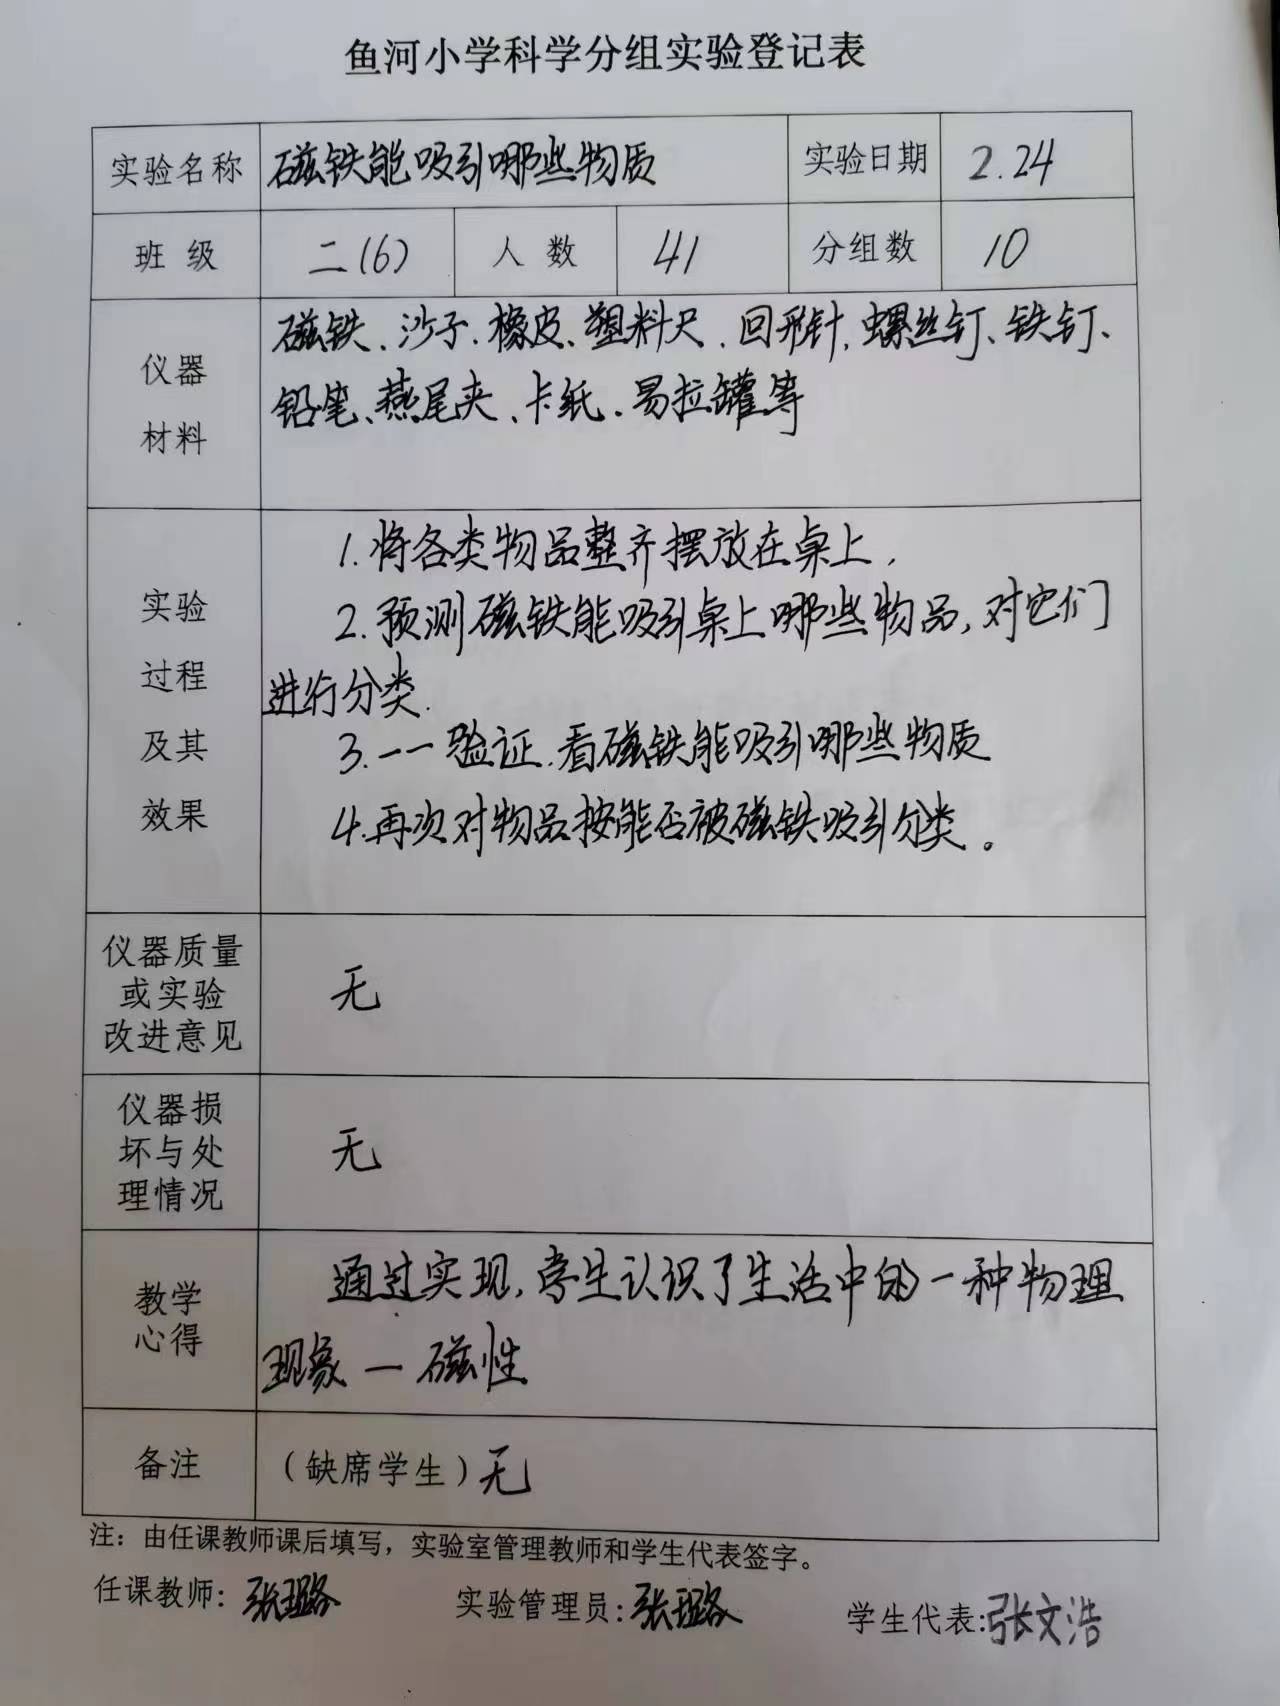 鱼河小学科学分组实验登记表
实验名称 磁铁能吸引哪些物质 实验日期 2.24
班 级 二(6) 人 数 41 分组数 10
仪器
材料
磁铁、沙子、橡皮、塑料尺、回形针、螺丝钉、铁钉、
铅笔、燕尾夹、卡纸、易拉罐等
实验
过程
及其
效果
1.将各类物品整齐摆放在桌上,
2.预测磁铁能吸引桌上哪些物品,对它们
进行分类.
3.一一验证.看磁铁能吸引哪些物质
4.再次对物品按能否被磁铁吸引分类。
仪器质量
或实验
改进意见
无
仪器损
坏与处
理情况
无
教学
心得
通过实现,学生认识了生活中的一种物理
现象一磁性
备注 (缺席学生)无
注:由任课教师课后填写,实验室管理教师和学生代表签字。
任课教师:张璐 实验管理员:张璐 学生代表:张文浩